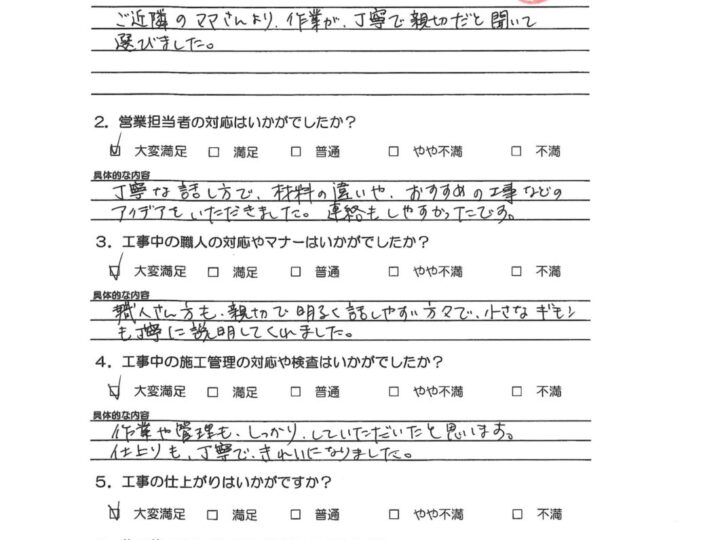 ご近隣のママさんより、作業が、丁寧で親切だと聞いて
選びました。
2．営業担当者の対応はいかがでしたか？
☑ 大変満足 □ 満足 □ 普通 □ やや不満 □ 不満
具体的な内容
丁寧な話し方で、材料の違いや、おすすめの工事などの
アイデアもいただきました。連絡もしやすかったです。
3．工事中の職人の対応やマナーはいかがでしたか？
☑ 大変満足 □ 満足 □ 普通 □ やや不満 □ 不満
具体的な内容
職人さん方も、親切で明るく話しやすい方々で、小さなギモン
も丁寧に説明してくれました。
4．工事中の施工管理の対応や検査はいかがでしたか？
☑ 大変満足 □ 満足 □ 普通 □ やや不満 □ 不満
具体的な内容
作業や管理も、しっかり、していただいたと思います。
仕上りも、丁寧で、きれいになりました。
5．工事の仕上がりはいかがですか？
☑ 大変満足 □ 満足 □ 普通 □ やや不満 □ 不満